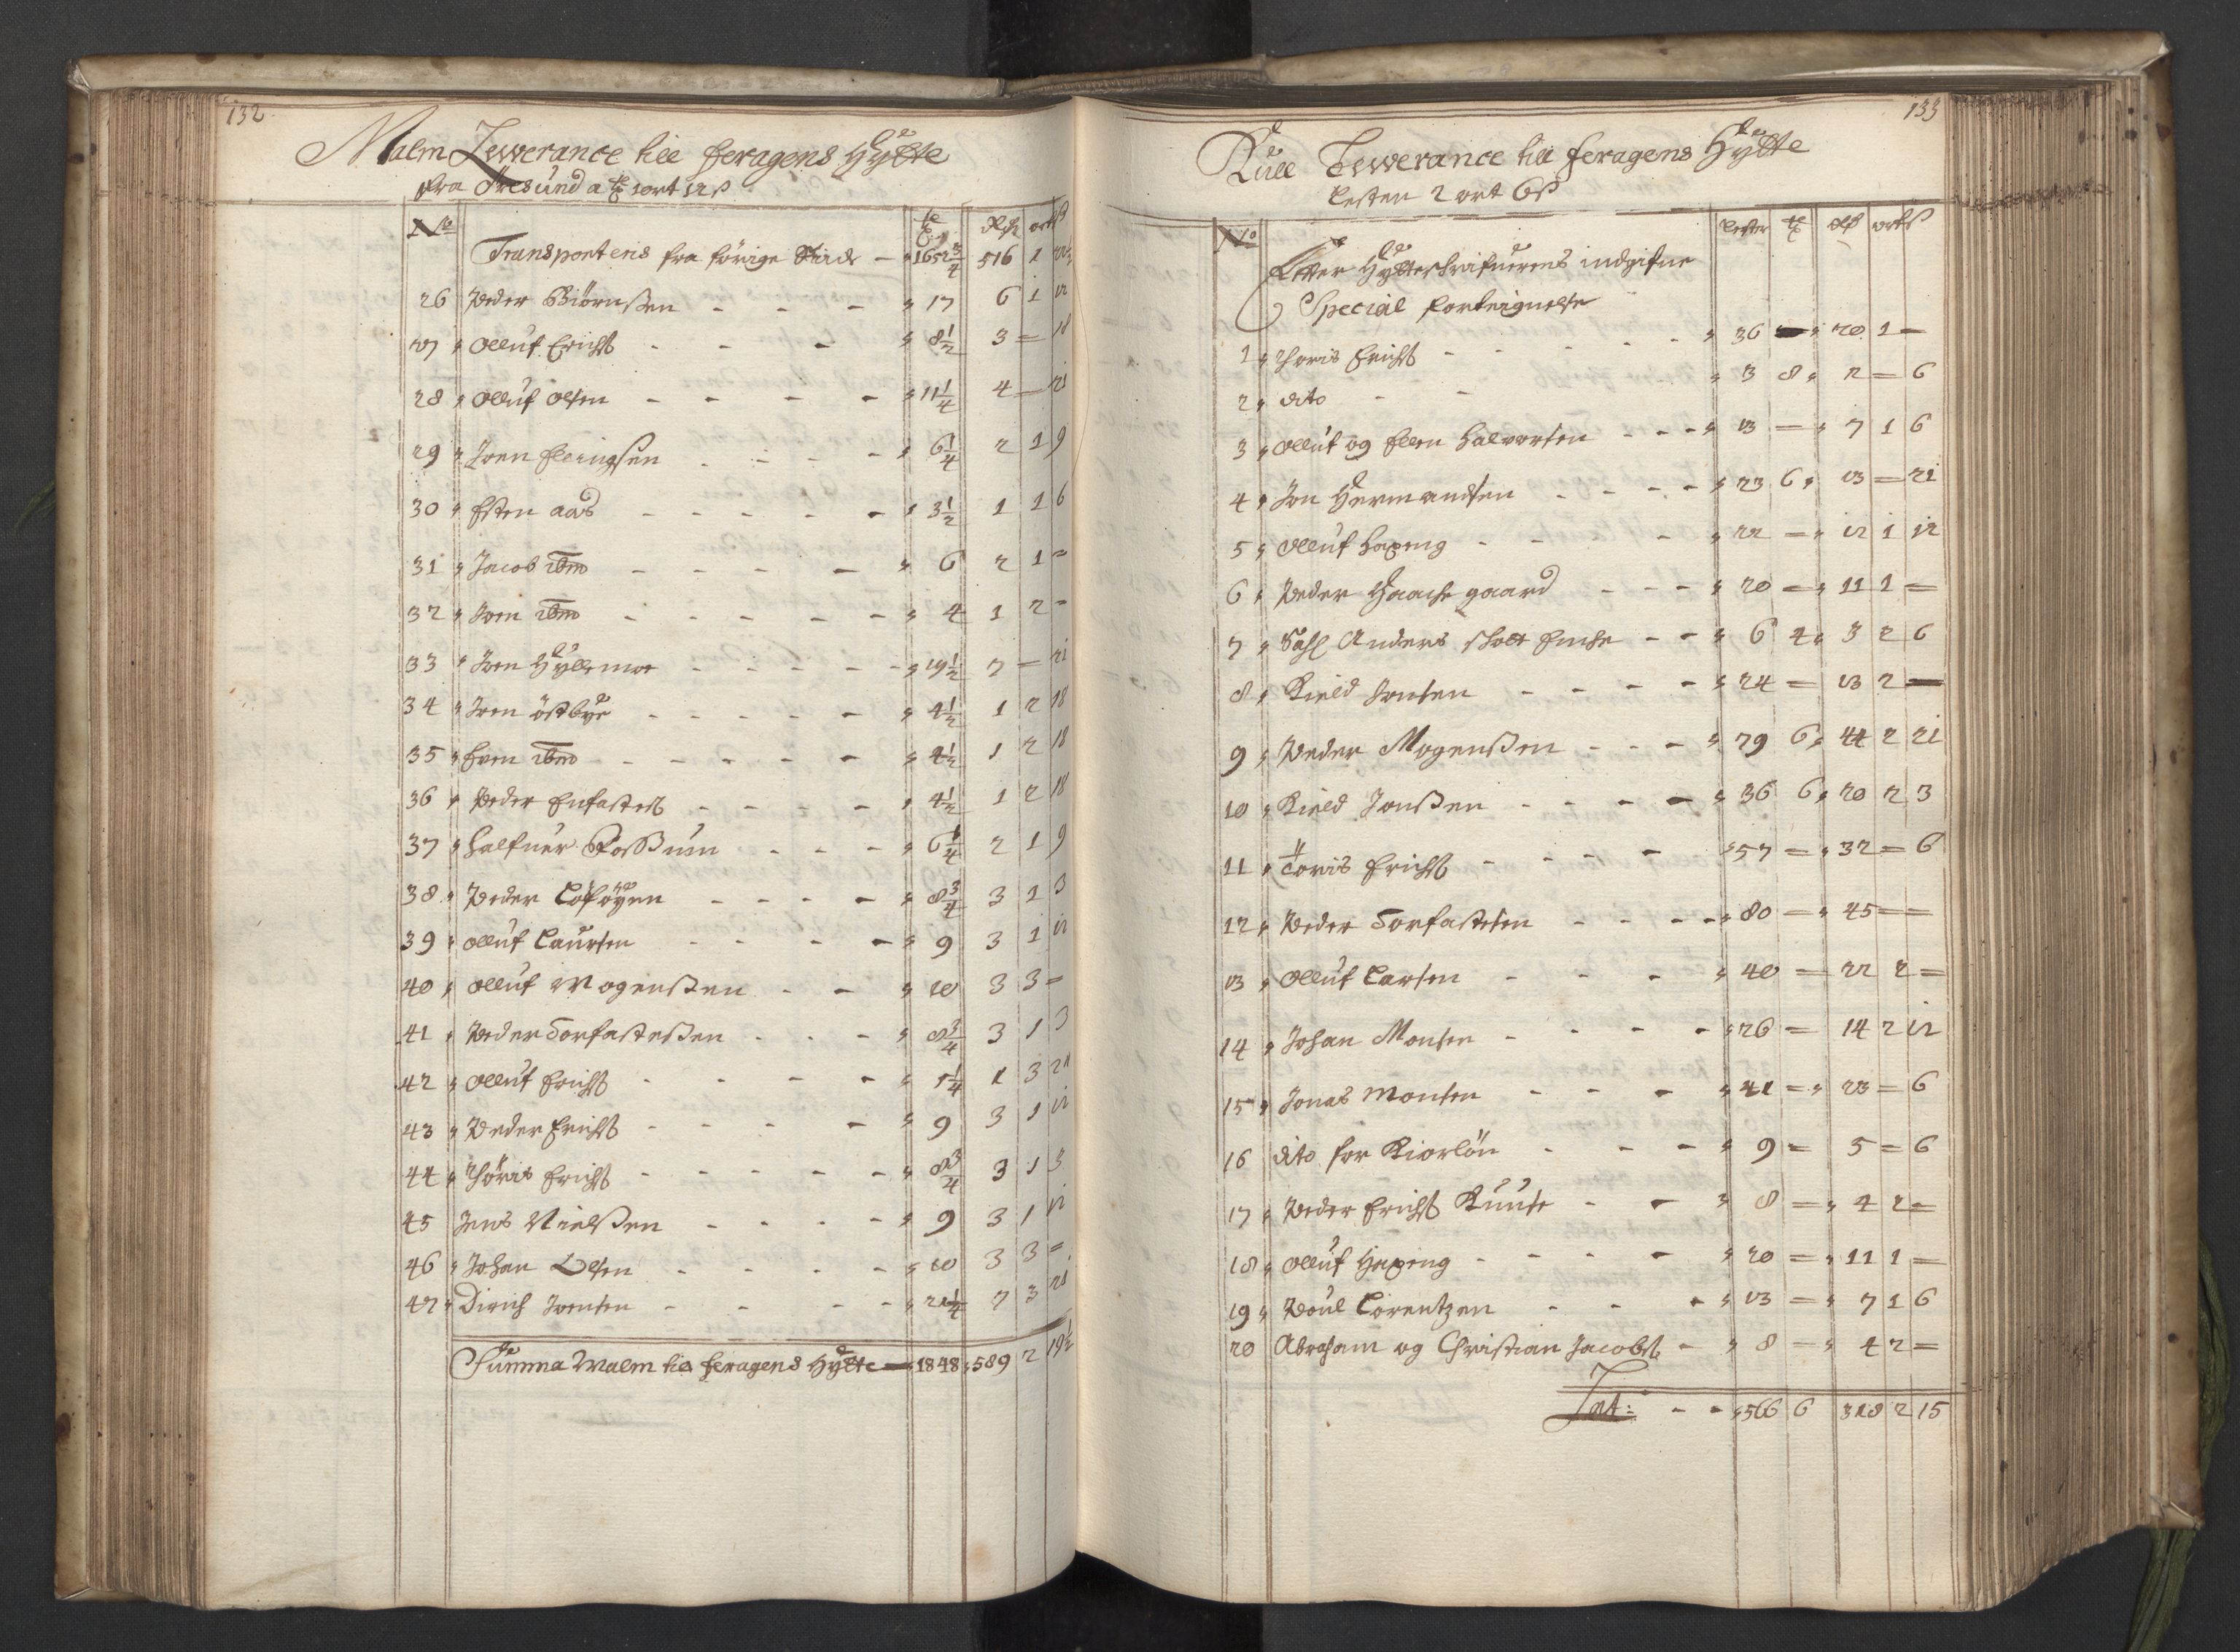 132
Malm Lewerance till feragens Hytte
fra Øresund a tde 1 ort 12 ß
No tde Rdr ort ß
Transporteris fra förige Side - 1652 3/4 516 1 22 1/2
26 Peder Biörnßen - - - 17 6 1 12
27 Olluf Erichs - - - 8 1/2 3 = 18
28 Olluf Olsen - - - - 11 1/4 4 - 21
29 Joen Flemigsen - - - - 6 1/4 2 1 9
30 Esten aas - - - - - 3 1/2 1 1 6
31 Jacob ibm - - - - 6 2 1 =
32 Joen ibm - - - - - 4 1 2 -
33 Joen Hyllemoe - - - - - 19 1/2 7 = 21
34 Joen östbye - - - - - 4 1/2 1 2 18
35 Even ibm - - - - - - 4 1/2 1 2 18
36 Peder Enfastes - - - - 4 1/2 1 2 18
37 Halfuer Foßum - - - 6 1/4 2 1 9
38 Peder Loföyen - - - - 8 3/4 3 1 3
39 Olluf Laursen - - - - 9 3 1 12
40 Olluf Mogenßen - - 10 3 3 =
41 Peder Torfasteßen - - - 8 3/4 3 1 3
42 Olluf Erichs - - - - 5 1/4 1 3 21
43 Peder Erichs - - - - 9 3 1 12
44 Thöris Erichs - - - - - 8 3/4 3 1 3
45 Jens Nielßen - - - - 9 3 1 12
46 Johan Olsen - - - - 10 3 3 =
47 Dirich Joensen - - - - 21 1/4 7 3 21
Summa Malm till feragens Hytte - 1848 589 2 19 1/2
133
Kull Lewerance till feragens Hytte
Lesten 2 ort 6 ß
No Lester tde Rdr ort ß
Efter Hytteschrifuerens indgifne
Special forteignelse
1 Thoris Erichs - - - - - - 36 - 20 1 -
2 dito - - 3 8 2 = 6
3 Olluf og Ellen Halvorsen - - - 13 = 7 1 6
4 Jon Hermandsen - - - - 23 6 13 = 21
5 Olluf Haxeng - - - - 22 = 12 1 12
6 Peder Haachegaard - - - 20 = 11 1 =
7 Sahl Anders Skott Enche - - 6 4 3 2 6
8 Kield Jonsen - - - - 24 = 13 2 -
9 Peder Mogenßen - - - 79 6 44 2 21
10 Kield Jonßen - - - - 36 6 20 2 3
11 Töris Erichs - - - - 57 = 32 = 6
12 Peder Torfastesen - - - - 80 = 45 = =
13 Olluf Larsen - - - 40 = 22 2 =
14 Johan Monsen - - - - 26 = 14 2 12
15 Jonas Monsen - - - 41 = 23 = 6
16 dito for Kiorlön - - - 9 = 5 = 6
17 Peder Erichs Kuuse - - 8 = 4 2 =
18 Olluf Haxeng - - - - 20 = 11 1 =
19 Poul Lorentzen - - - 13 = 7 1 6
20 Abraham og Christian Jacobs - 8 = 4 2 =
Lat: - - 566 6 318 2 15